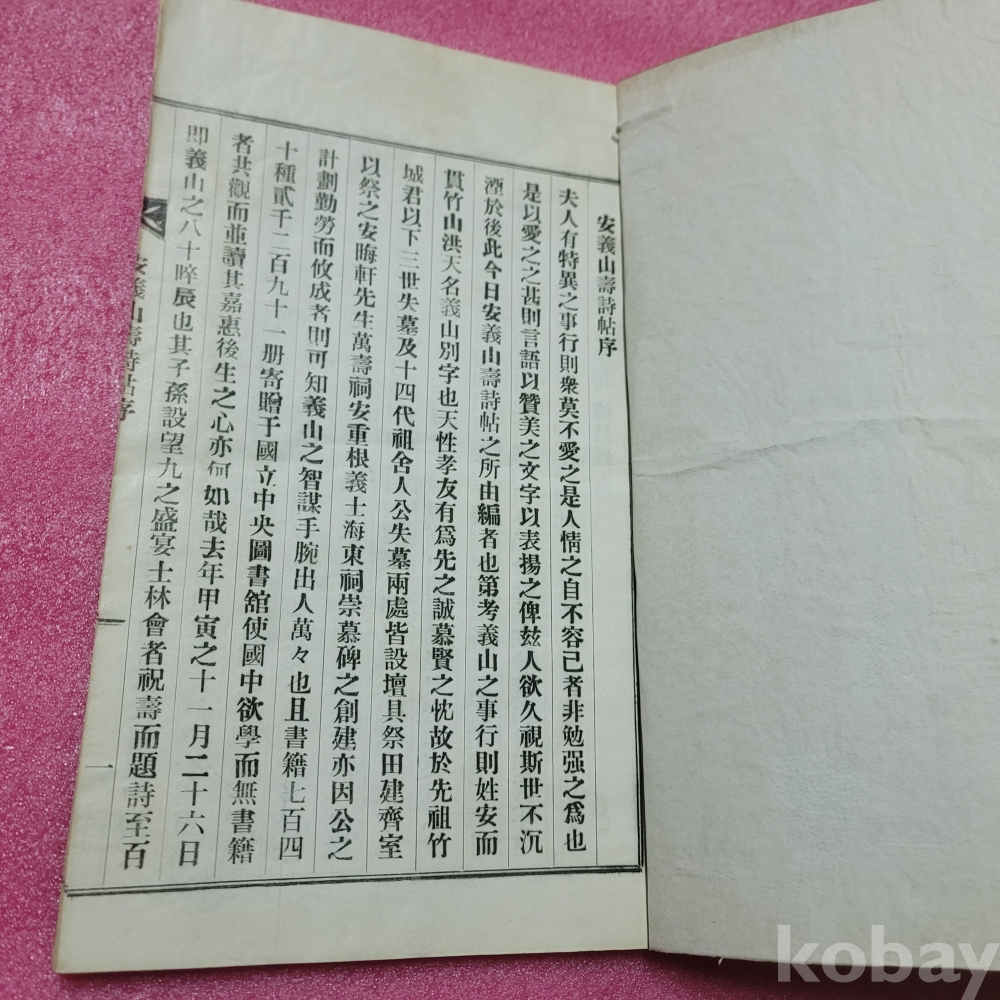 安義山壽詩帖序
夫人有特異之事行則衆莫不愛之是人情之自不容已者非勉强之爲也
是以愛之之甚則言語以贊美之文字以表揚之俾玆人欲久視斯世不沉
湮於後此今日安義山壽詩帖之所由編者也第考義山之事行則姓安而
貫竹山洪天名義山別字也天性孝友有爲先之誠慕賢之忱故於先祖竹
城君以下三世失墓及十四代祖舍人公失墓兩處皆設壇具祭田建齊室
以祭之安晦軒先生萬壽祠安重根義士海東祠崇慕碑之創建亦因公之
計劃勤勞而攸成者則可知義山之智謀手腕出人萬々也且書籍七百四
十種貳千二百九十一册寄贈于國立中央圖書舘使國中欲學而無書籍
者共觀而並讀其嘉惠後生之心亦何如哉去年甲寅之十一月二十六日
即義山之八十晬辰也其子孫設望九之盛宴士林會者祝壽而題詩至百
安義山壽詩帖序
一
kobay